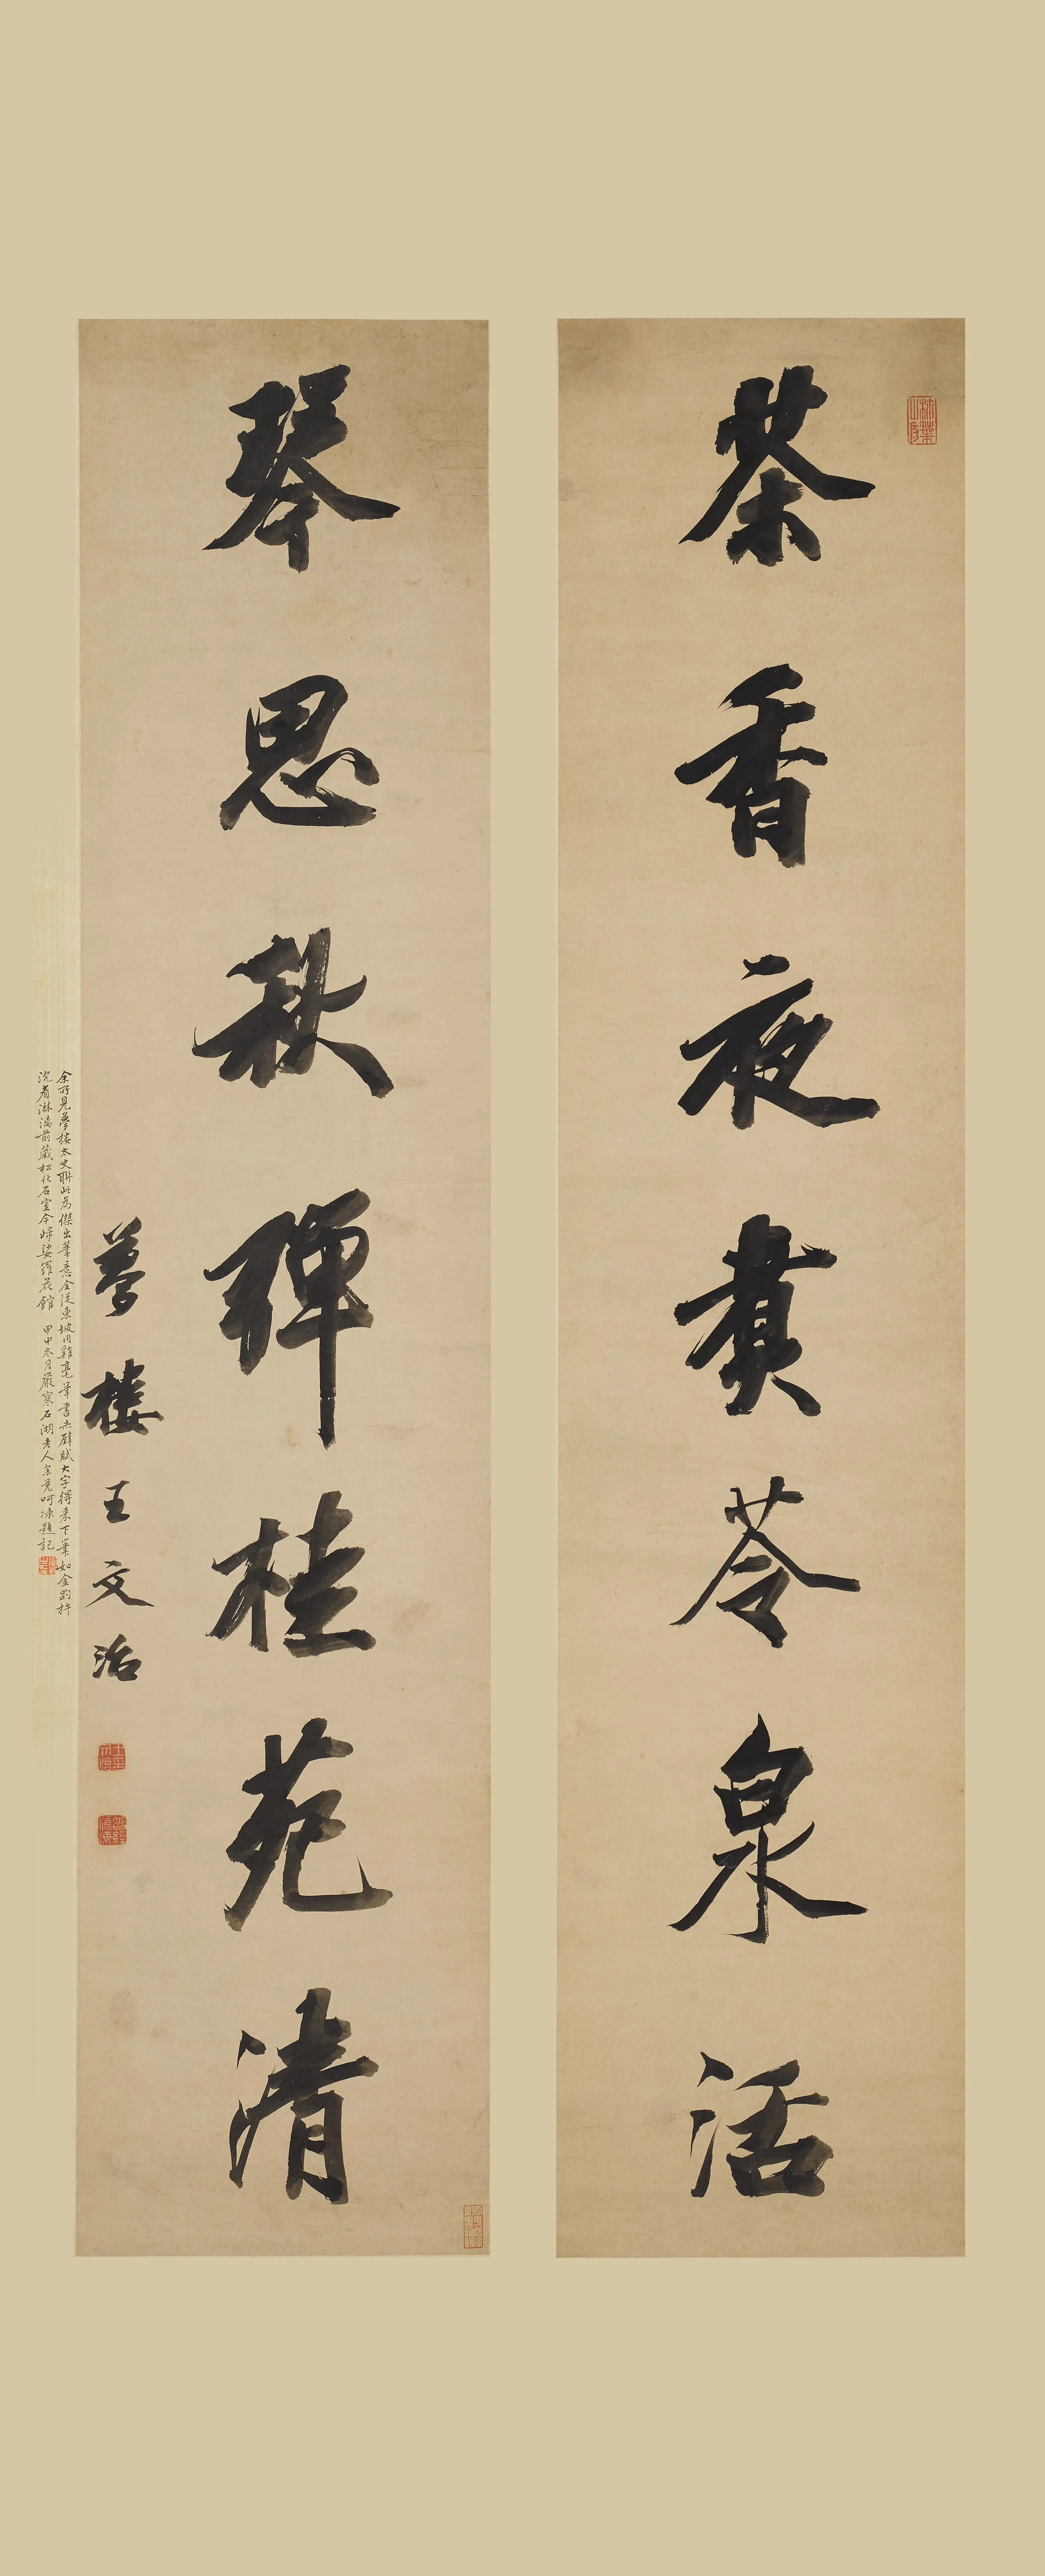 茶香夜煑苓泉活
琴思秋彈桂苑清
夢樓王文治
余所見夢樓太史聯此為傑出筆意全從東坡用雞毫筆書赤壁賦大字得來下筆如金剛杵
沈着淋漓前藏松化石室今歸娑羅花館 甲申冬月嚴寒石湖老人余覺呵凍題記